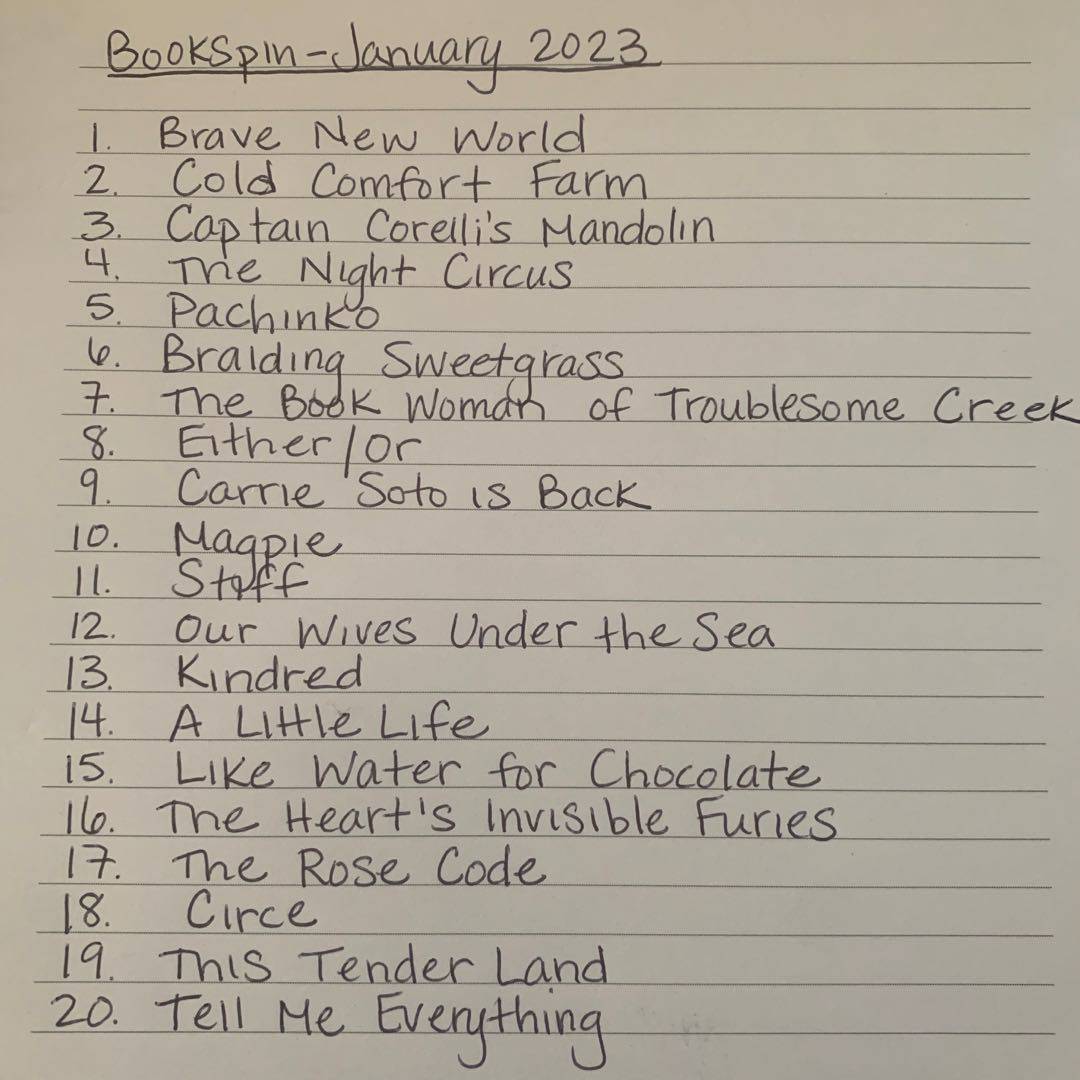 BookSpin-January 2023
1. Brave New World
2. Cold Comfort Farm
3. Captain Corelli's Mandolin
4. The Night Circus
5. Pachinko
6. Braiding Sweetgrass
7. The Book Woman of Troublesome Creek
8. Either/Or
9. Carrie Soto is Back
10. Magpie
11. Stiff
12. Our Wives Under the Sea
13. Kindred
14. A Little Life
15. Like Water for Chocolate
16. The Heart's Invisible Furies
17. The Rose Code
18. Circe
19. This Tender Land
20. Tell Me Everything